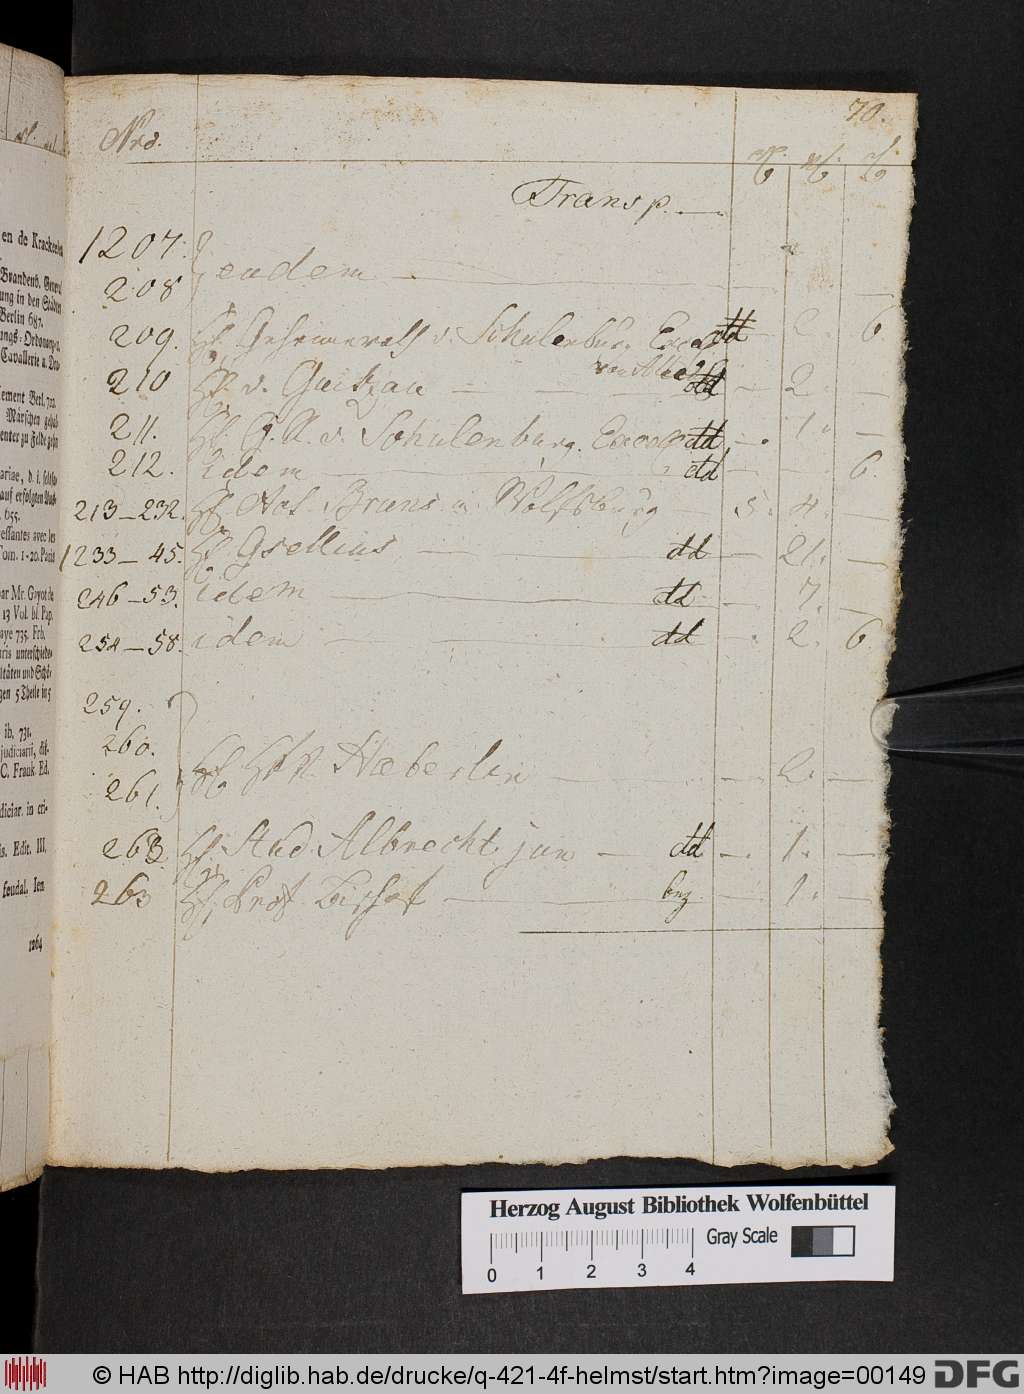 70.
Nro.
Transp.
1207.
208 eadem
209. Hl. Geheimerath v. Schulenburg Excell dd — 2. 6
von Altes
210 Hl. v. Gutzau — dd — 2 —
211. Hl. G. R. v. Schulenburg. Excell dd —. 1. —
212. idem — dd — — 6.
213—232. Hl. Ant. Bruns in Wolfsburg — 5. 4. —
1233—45. Hl. Gsellius — dd — 21. —
246—53. idem — dd — 7. —
254—58. idem — dd — . 2. 6.
259.
260.
Hl. Haeberlin — — 2. —
261.
263. Hl. Stud. Albrecht jun — dd — 1. —
263 Hl. Prof. Bischof — bez — 1. —
en de Krackee
Brandenb. General
ung in den Städten
Berlin 687.
Cavallerie u. Dra-
ement Berl. 702.
Märschen gehalt
enter zu Felde gehn
ariae, d. i.
auf erfolgten
655.
essantes avec les
Tom. 1-20. Paris
par Mr. Goyot de
13 Vol. bl. Pap.
aye 735. Frb.
aris unterschiede-
itäten und Schö-
gen 5 Theile in 5
ib. 731.
judiciarii, dis-
C. Frauk Ed.
diciar. in cri-
is. Edit. III.
feudal, Ien
1264
Herzog August Bibliothek Wolfenbüttel
Gray Scale
0 1 2 3 4
© HAB http://diglib.hab.de/drucke/q-421-4f-helmst/start.htm?image=00149
DFG